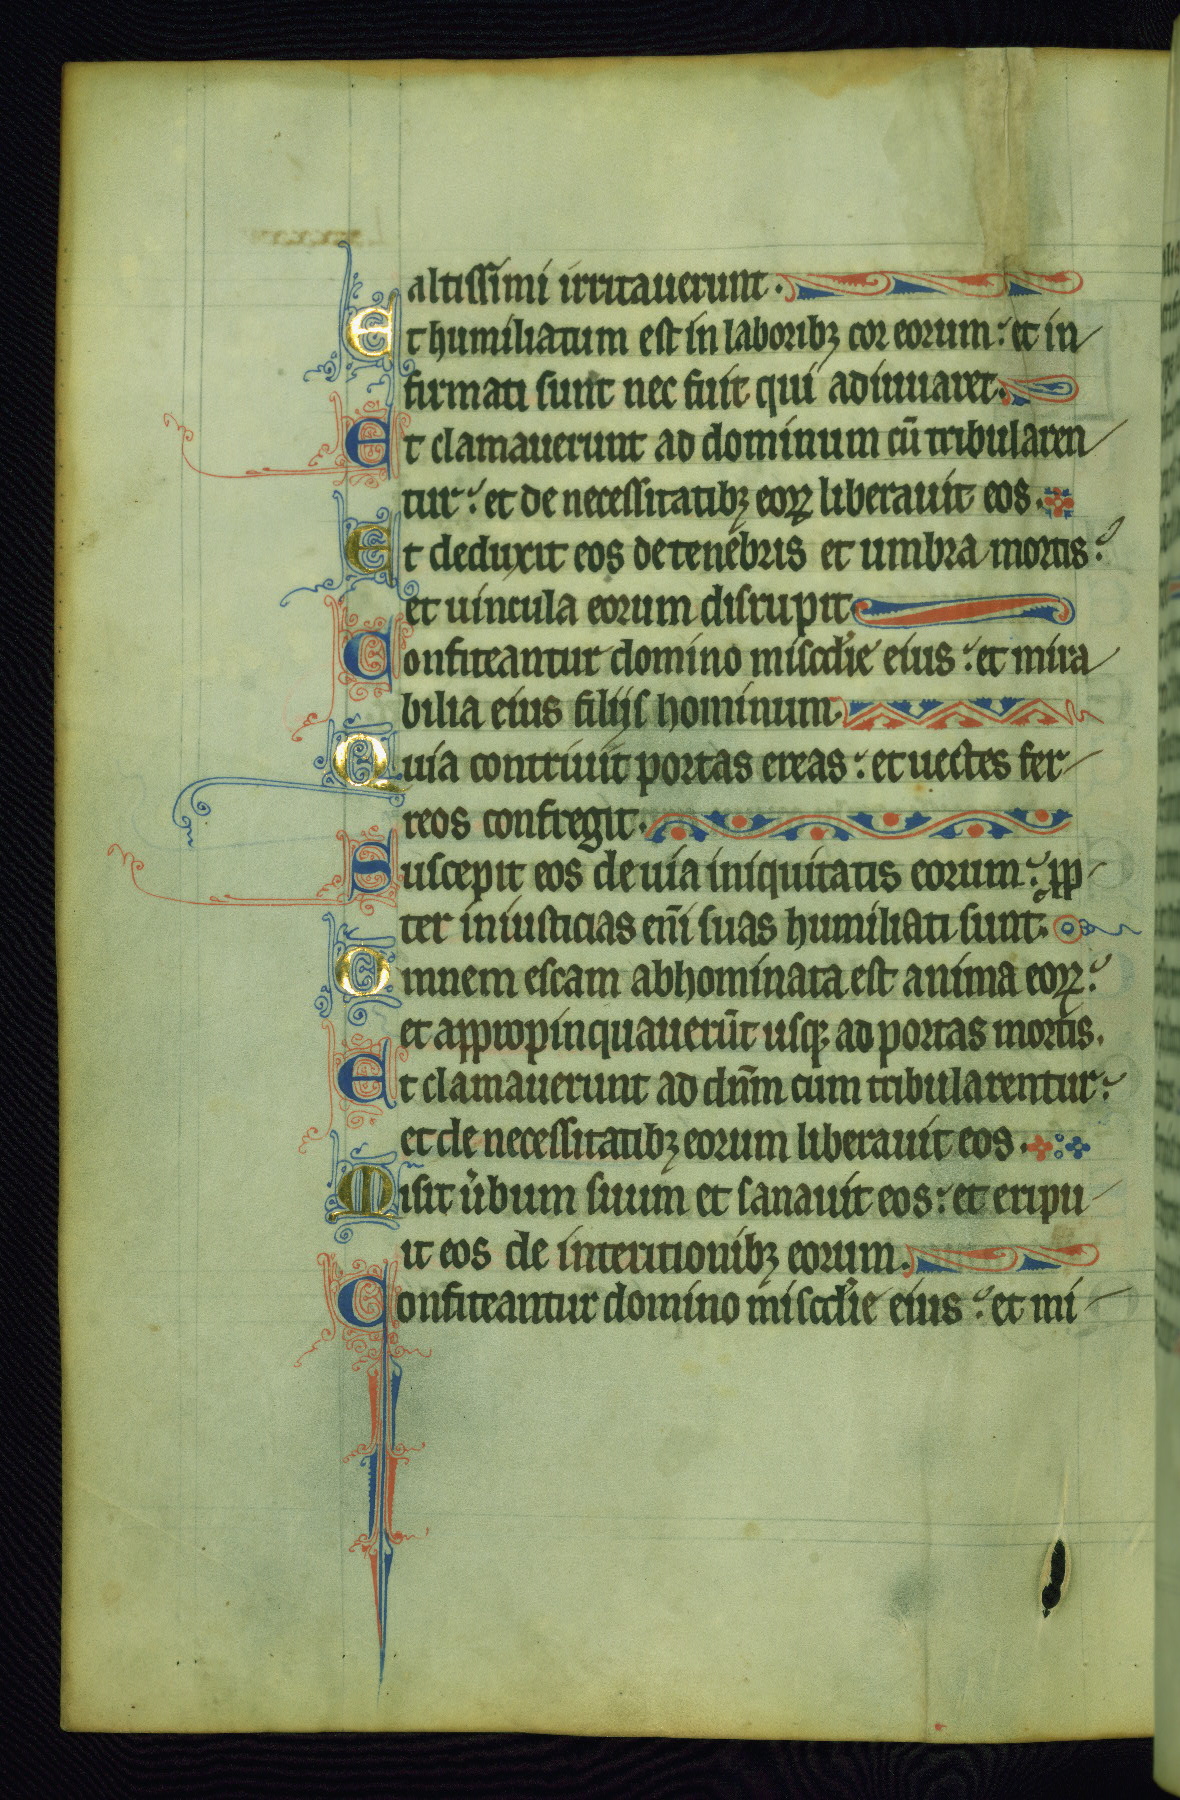 altissimi irritauerunt.
Et humiliatum est in laboribꝫ cor eorum: et in
firmati sunt nec fuit qui adiuuaret.
Et clamauerunt ad dominum cū tribularen
tur: et de necessitatibꝫ eoꝝ liberauit eos.
Et deduxit eos de tenebris et umbra mortis:
et uincula eorum disrupit
Confiteantur domino miscd'ie eius: et mira
bilia eius filijs hominum.
Quia contriuit portas ereas: et uectes fer
reos confregit.
Suscepit eos de uia iniquitatis eorum: ꝓp
ter iniusticias eni̅ suas humiliati sunt.
Omnem escam abhominata est anima eoꝝ:
et appropinquauerūt usqꝫ ad portas mortis.
Et clamauerunt ad dn̄m cum tribularentur:
et de necessitatibꝫ eorum liberauit eos.
Misit u̓bum suum et sanauit eos: et eripu
it eos de interitionibꝫ eorum.
Confiteantur domino miscd'ie eius: et mi